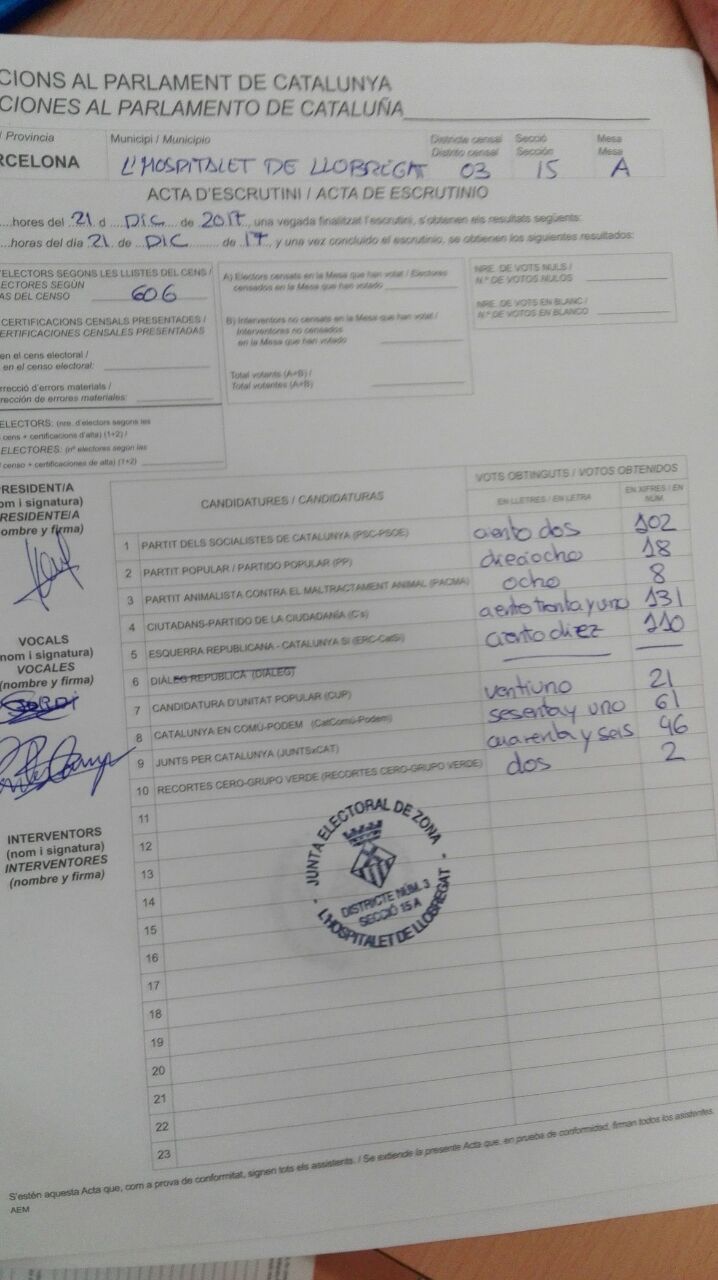 CIONS AL PARLAMENT DE CATALUNYA
CIONES AL PARLAMENTO DE CATALUÑA
/ Provincia
Municipi / Municipio
Districte censal
Distrito censal
Secció
Sección
Mesa
Mesa
RCELONA
L'HOSPITALET DE LLOBREGAT
03
15
A
ACTA D'ESCRUTINI / ACTA DE ESCRUTINIO
hores del 21 d DIC de 2017, una vegada finalitzat l'escrutini, s'obtenen els resultats següents:
horas del día 21 de DIC de 17, y una vez concluido el escrutinio, se obtienen los siguientes resultados:
ELECTORS SEGONS LES LLISTES DEL CENS /
ECTORES SEGÚN
AS DEL CENSO
606
CERTIFICACIONS CENSALS PRESENTADES /
ERTIFICACIONES CENSALES PRESENTADAS
en el cens electoral /
en el censo electoral:
rrecció d'errors materials /
rección de errores materiales:
ELECTORS: (nre. d'electors segons les
cens + certificacions d'alta) (1+2) /
ELECTORES: (nº electores según las
censo + certificaciones de alta) (1+2)
A) Electors censats en la Mesa que han votat / Electores
censados en la Mesa que han votado
B) Interventors no censats en la Mesa que han votat /
Interventores no censados
en la Mesa que han votado
Total votants (A+B) /
Total votantes (A+B)
NRE. DE VOTS NULS /
N.º DE VOTOS NULOS
NRE. DE VOTS EN BLANC /
N.º DE VOTOS EN BLANCO
RESIDENT/A
om i signatura)
RESIDENTE/A
ombre y firma)
VOCALS
(nom i signatura)
VOCALES
(nombre y firma)
INTERVENTORS
(nom i signatura)
INTERVENTORES
(nombre y firma)
CANDIDATURES / CANDIDATURAS
VOTS OBTINGUTS / VOTOS OBTENIDOS
EN LLETRES / EN LETRA
EN XIFRES / EN NÚM.
1 PARTIT DELS SOCIALISTES DE CATALUNYA (PSC-PSOE) ciento dos 102
2 PARTIT POPULAR / PARTIDO POPULAR (PP) dieciocho 18
3 PARTIT ANIMALISTA CONTRA EL MALTRACTAMENT ANIMAL (PACMA) ocho 8
4 CIUTADANS-PARTIDO DE LA CIUDADANÍA (C's) ciento treinta y uno 131
5 ESQUERRA REPUBLICANA - CATALUNYA SÍ (ERC-CatSí) ciento diez 110
6 DIÀLEG REPÚBLICA (DIÀLEG)
7 CANDIDATURA D'UNITAT POPULAR (CUP) ventiuno 21
8 CATALUNYA EN COMÚ-PODEM (CatComú-Podem) sesenta y uno 61
9 JUNTS PER CATALUNYA (JUNTSxCAT) cuarenta y seis 46
10 RECORTES CERO-GRUPO VERDE (RECORTES CERO-GRUPO VERDE) dos 2
11
12
13
14
15
16
17
18
19
20
21
22
23
JUNTA ELECTORAL DE ZONA
DISTRICTE NÚM. 3
SECCIÓ 15 A
L'HOSPITALET DE LLOBREGAT
S'estén aquesta Acta que, com a prova de conformitat, signen tots els assistents. / Se extiende la presente Acta que, en prueba de conformidad, firman todos los asistentes.
AEM